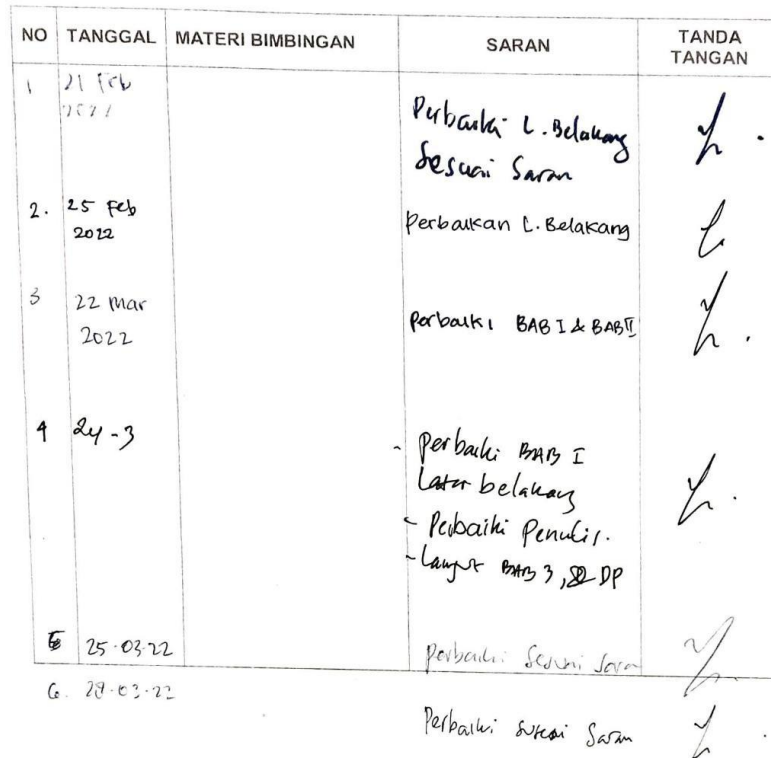 NO TANGGAL MATERI BIMBINGAN SARAN TANDA TANGAN
1 21 Feb
2022
Perbaiki L. Belakang
Sesuai Saran
2. 25 Feb
2022
Perbaikan L. Belakang
3 22 Mar
2022
Perbaiki BAB I & BAB II
4 24-3
- Perbaiki BAB I
Latar belakang
- Perbaiki Penulis.
- Lanjut BAB 3, DP
5 25-03-22
Perbaiki Sesuai Saran
6. 28-03-22
Perbaiki Sesuai Saran